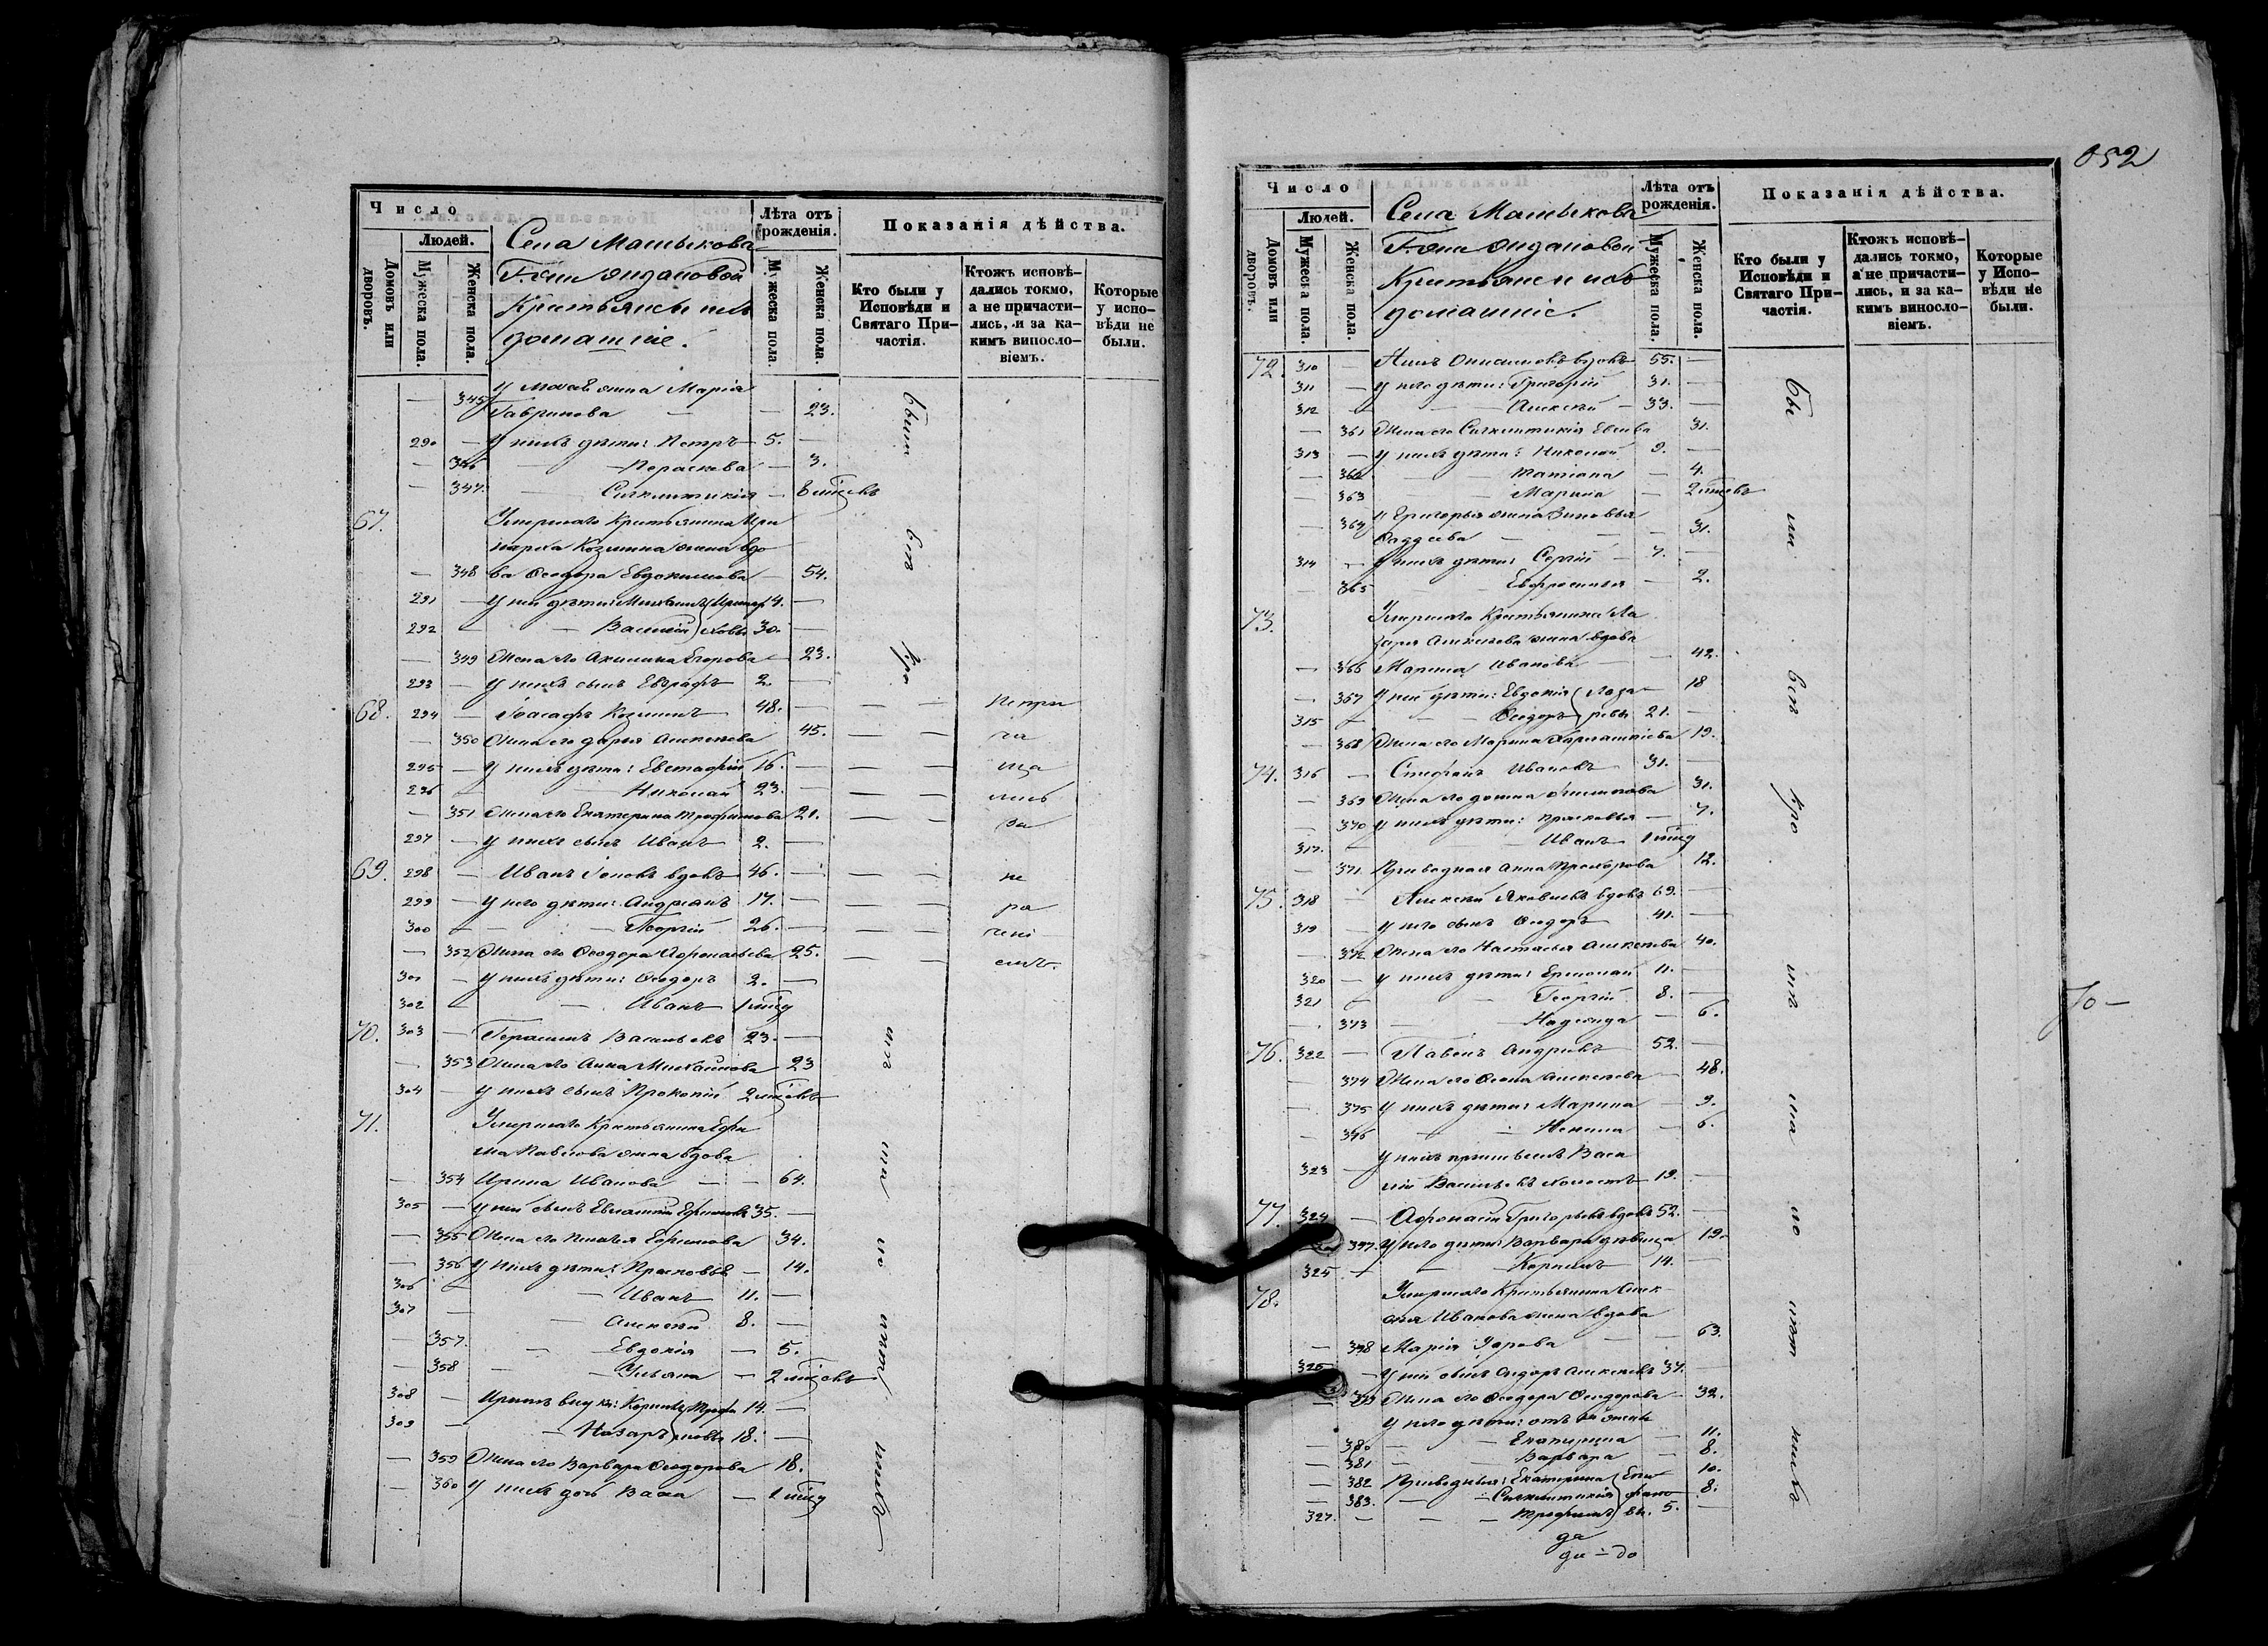 Число
Людей.
Домовъ или дворовъ.
Мужеска пола.
Женска пола.
Села Машыкова
Г-жи Андановой
Крестьяне и ихъ
домашніе.
Лѣта отъ рожденія.
Мужеска пола.
Женска пола.
Показанія дѣйства.
Кто были у Исповѣди и Святаго Причастія.
Ктожъ исповѣдались токмо, а не причастились, и за какимъ винословіемъ.
Которые у исповѣди не были.
У жена Марія
345 Гаврилова — — 23.
290 — У нихъ дѣти: Петръ 5. —
— 346 — Параскева — 3.
— 347. — Сигклитикія — 8 мѣсяцевъ
67. Умершаго Крестьянина Ири
нарха Козмина жена вдо
— 348 ва Ѳеодора Евдокимова — 54.
291 — У ней дѣти: Михаилъ Иринар 4. —
292 — — Василій ховы 30. —
— 349 Жена его Акилина Егорова — 23.
293 — У нихъ сынъ Евграфъ 2. —
68. 294 — Іоасафъ Козминъ 48. — — — Непри
— 350 Жена его Дарья Алексеева 45. — — ча
295 — У нихъ дѣти: Евстафій 16. — — — ща
296 — — Николай 23. — — — лись
— 351 Жена его Екатерина Трофимова 21. — — за
297 — У нихъ сынъ Иванъ 2. —
69. 298 — Иванъ Іоновъ вдовъ 46. — — — не
299 — У него дѣти: Андреанъ 17. — — — ра
300 — — Георгій 26. — — — чені
— 352 Жена его Ѳеодора Аѳонасьева 25. — — емъ.
301 — У нихъ дѣти: Ѳеодоръ 2. —
302 — — Иванъ 1 мѣсяц
70. 303 — Герасимъ Васильевъ 23. —
— 353 Жена его Анна Михаилова 23
304 — У нихъ сынъ Прокопій 2 мѣсяцевъ
71. Умершаго Крестьянина Ефи
ма Павлова жена вдова
— 354 Ирина Иванова — — 64.
305 — У ней сынъ Евлампій Ефимовъ 35. —
— 355 Жена его Пелагея Ефимова 34.
— 356 У нихъ дѣти: Прасковья — 14.
306 — — Иванъ 11. —
307 — — Алексей 8. —
— 357. — Евдокія — 5.
— 358 — Ульяна — 2 мѣсяцевъ
308 — Ирины внуки: Корнилъ Трофи 14. —
309 — — Назаръ мовы 18. —
— 359 Жена его Варвара Ѳеодорова 18.
— 360 У нихъ дочь Васса — 1 мѣсяц
были
всѣ
кро
мѣ
ма
по
лѣт
нихъ
052
Число
Людей.
Домовъ или дворовъ.
Мужеска пола.
Женска пола.
Села Машыкова
Г-жи Андановой
Крестьяне и ихъ
домашніе.
Лѣта отъ рожденія.
Мужеска пола.
Женска пола.
Показанія дѣйства.
Кто были у Исповѣди и Святаго Причастія.
Ктожъ исповѣдались токмо, а не причастились, и за какимъ винословіемъ.
Которые у Исповѣди не были.
72. 310 — вдовъ 55. —
311 — У него дѣти: Григорій 31. —
312 — — Алексей — 33. —
— 361 Жена его Сигклитикія 31.
313 — У нихъ дѣти: Николай 9. —
— 362 — Татіана — 4.
— 363 — Марина — 2 мѣсяцевъ
— 364 У Григорья жена Зиновья
Фаддеева — — 31.
314 — У нихъ дѣти: Сергій — 7. —
— 365 Евфросинья — 2.
73. Умершаго Крестьянина Ла
заря Алексеева жена вдова
— 366 Марина Иванова — 42.
— 367 У ней дѣти: Евдокія Лаза — 18
315 — — Ѳеодоръ ревы 21. —
— 368 Жена его Марина 19.
74. 316 — Стефанъ Ивановъ 31. —
— 369 Жена его Домна 31.
— 370 У нихъ дѣти: Прасковья — 7.
317. — Иванъ 1 мѣсяц
— 371 Приводная Анна Прохорова 12.
75. 318 — Алексей Яковлевъ вдовъ 69. —
319 — У него сынъ Ѳеодоръ 41. —
— 372 Жена его Настасья Алексеева 40.
320 — У нихъ дѣти: Ермолай 11. —
321 — — Георгій 8. —
— 373 — Надежда — 6.
76. 322 — Павелъ Андреевъ 52. —
— 374 Жена его Ѳекла Алексеева — 48.
— 375 У нихъ дѣти: Марина — 9.
— 376 — Ненила — 6.
323 — У нихъ Васи
лій Васильевъ холостъ 19. —
77. 324 — Аѳонасій Григорьевъ вдовъ 52. —
— 377. У него дѣти: Варвара дѣвица 19.
325 — — Корнилъ 14. —
78. Умершаго Крестьянина Алек
сея Иванова жена вдова
— 378 Марія — — 63.
326 — У ней сынъ Сидоръ Алексеевъ 37. —
— 379 Жена его Ѳеодора Ѳеодорова — 32.
У него дѣти: отъ жены
— 380 — Екатерина — 11.
— 381 — Варвара — 8.
— 382 Приводныя: Екатерина Епи 10.
— 383. — Сигклитикія фано 8.
327. — — Трофимъ вы. 5. —
бы
ли
всѣ
кро
мѣ
ма
ло
лѣт
нихъ